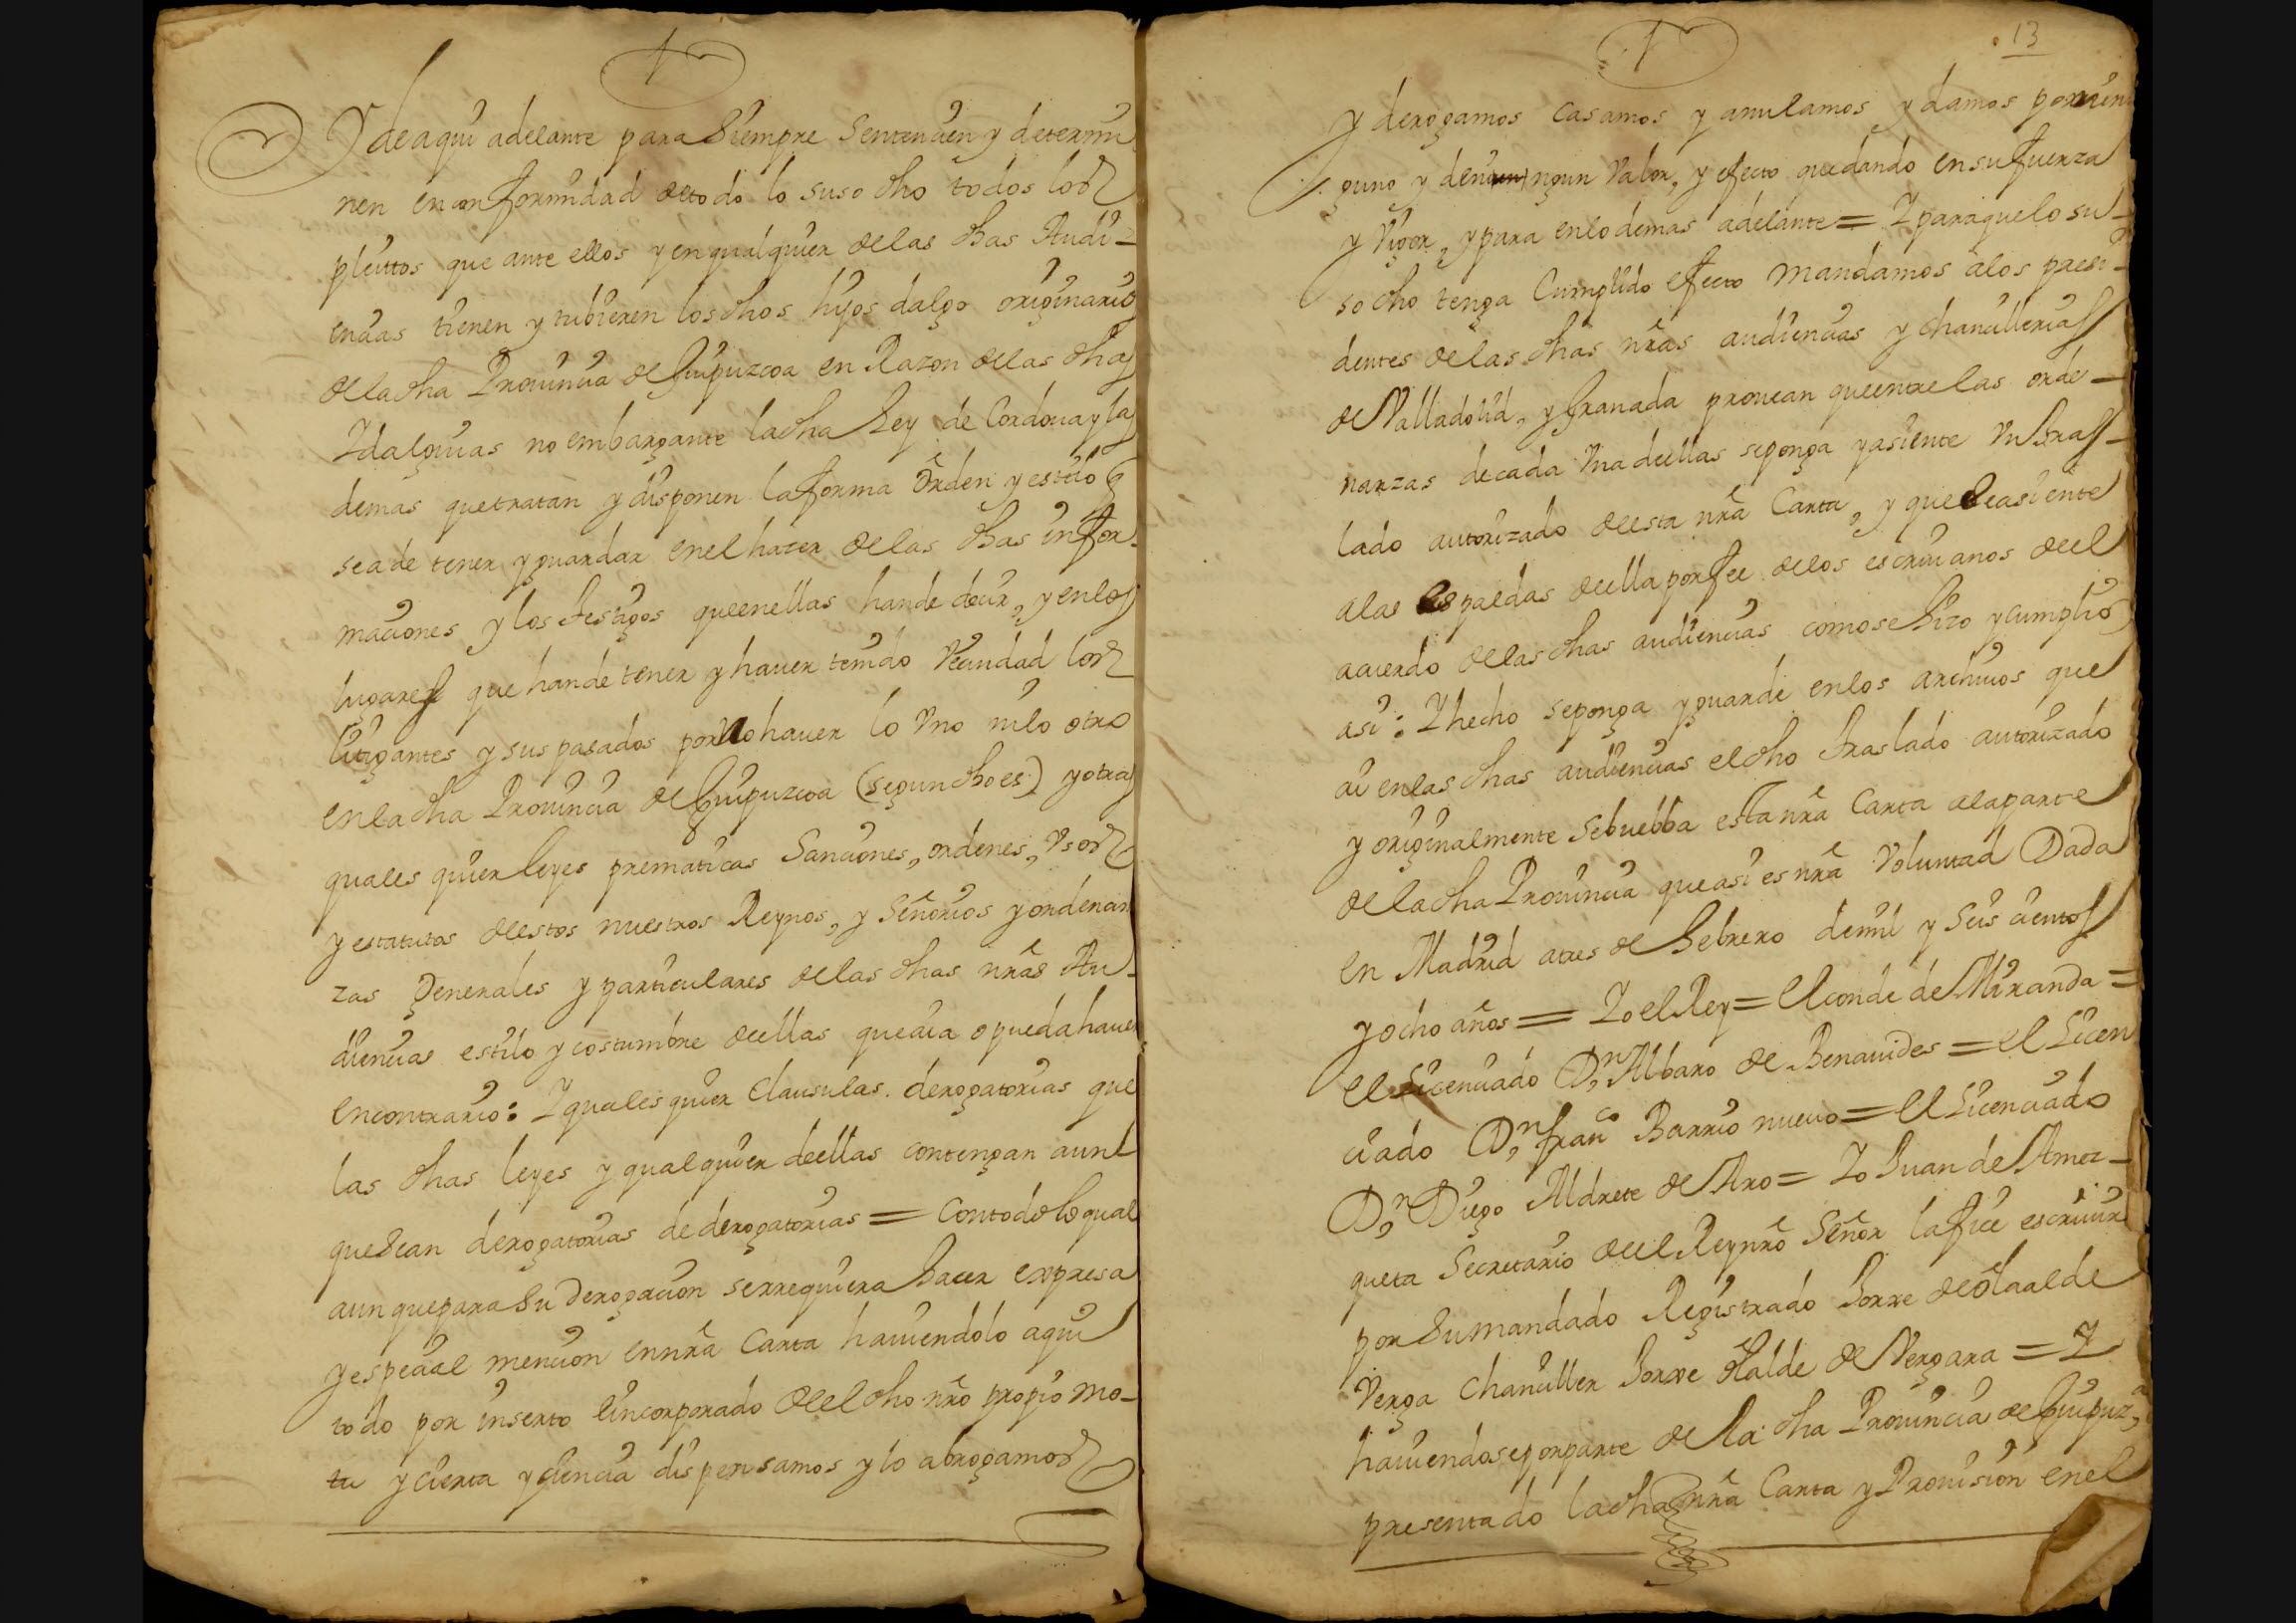 Y de aqui adelante para Siempre Sentencien y determi
nen en conformidad de todo lo suso dho todos los
pleittos que ante ellos y en qualquier de las dhas Audi-
encias tienen y tubieren los dhos hijos dalgo originarios
de la dha Prouincia de Guipuzcoa en Razon de las dhas
Ydalguias no embargante la dha Ley de Cordoua y las
demas que tratan y disponen la forma Orden y estilo q
se a de tener y guardar en el hacer de las dhas infor-
maciones y los testigos que en ellas han de decir, y en los
lugares que han de tener y hauer tenido Vecindad los
litigantes y sus pasados por no hauer lo Vno ni lo otro
en la dha Prouincia de Guipuzcoa (segun dho es) y otras
quales quier leyes prematicas Sanciones, ordenes, Vsos
y estatutos de estos nuestros Reynos, y Señorios y ordenan
zas generales y particulares de las dhas nrãs Au-
diencias estilo y costumbre de ellas que aia o pueda hauer
en contrario: Y quales quier Clausulas derogatorias que
las dhas leyes y qualquier de ellas contengan aunl
que Sean derogatorias de derogatorias = Con todo lo qual
aun que para Su Derogacion se rrequiera hacer expresa
y especial mencion en nrã Carta hauiendolo aqui
todo por inserto e incorporado de el dho nrõ propio mo-
tu y cierta y ciencia dispensamos y lo abrogamos
13
y derogamos casamos y anulamos y damos por nin
guno y de nin ngun Valor, y efecto quedando en su fuerza
y Vigor, y para en lo demas adelante = Y para que lo su-
so dho tenga Cumplido efecto Mandamos a los presi-
dentes de las dhas nrãs audiencias y chancillerias
de Valladolid, y Granada prouean que entre las orde-
nanzas de cada Vna de ellas se ponga y asiente Vn tras-
lado autorizado de esta nrã Carta, y que se asiente
a las espaldas de ella por fee de los escriuanos de el
acuerdo de las dhas audiencias como se hizo y cumplio
asi: Y hecho se ponga y guarde en los archiuos que
ai en las dhas audiencias el dho traslado autorizado
y originalmente se buelba esta nrã Carta a la parte
de la dha Prouincia que asi es nrã Voluntad Dada
en Madrid a tres de Febrero de mil y Seis cientos
y ocho años = Yo el Rey = El conde de Miranda =
el Licenciado Dn Albaro de Benauides = el Licen
ciado Dn Franco Barrio nueuo = el Licenciado
Dn Diego Aldrete de Aro = Yo Juan de Amez-
queta Secretario de el Rey nrõ Señor la fice escriuir
por Su mandado Registrado Jorxe de Olaalde
Verga Chanciller Jorxe Olalde de Vergara = Y
hauiendose por parte de la dha Prouincia de Guipuzca
presentado la dha nrã Carta y Prouision en el